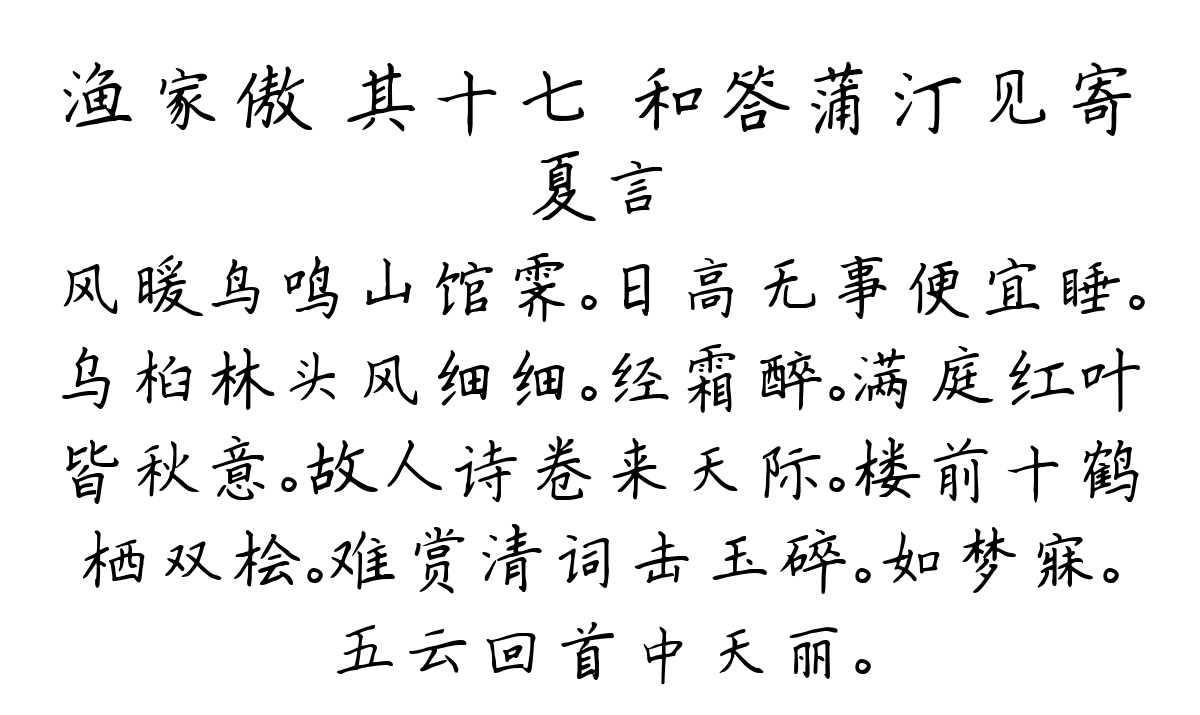 渔家傲 其十七 和答蒲汀见寄
夏言
风暖鸟鸣山馆霁。日高无事便宜睡。
乌桕林头风细细。经霜醉。满庭红叶
皆秋意。故人诗卷来天际。楼前十鹤
栖双桧。难赏清词击玉碎。如梦寐。
五云回首中天丽。